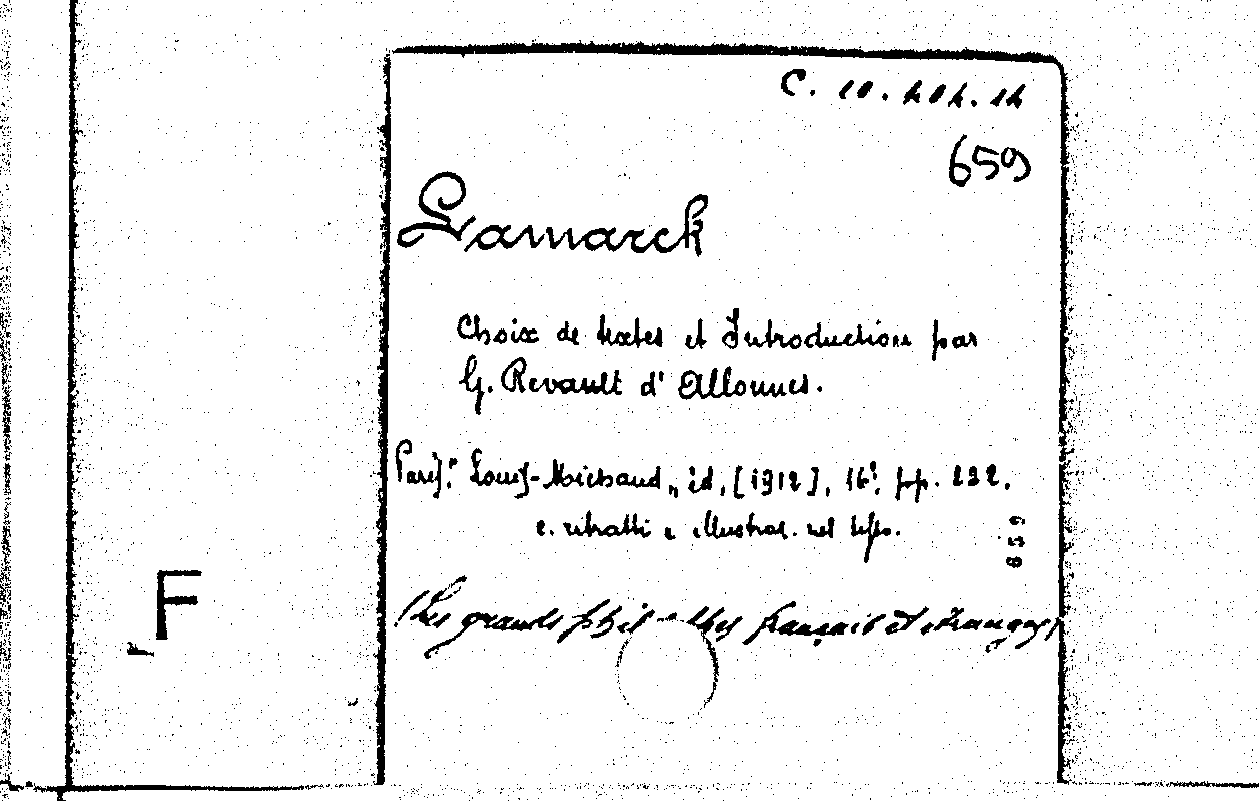 C. 10. 202. 12
659
Lamarck
Choix de textes et Introduction par
G. Revault d'Allonnes.
Paris, Louis-Michaud, éd, [1912], 16°, pp. 232.
c. ritratti e illustraz. nel testo.
659
(Les grands philosophes français et étrangers)
F